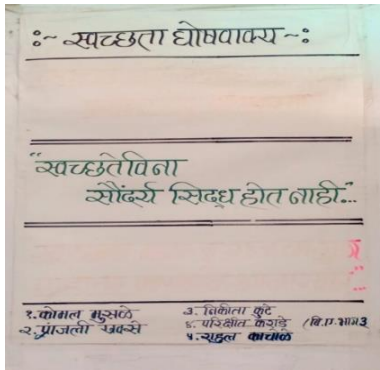 :~ स्वच्छता घोषवाक्य ~:
"स्वच्छतेविना
सौंदर्य सिद्ध होत नाही."...
१. कोमल मुसळे
२. प्रांजली
३. निकीता कुटे
४. परिक्षीत (बि.ए.भाग 3
५. राहुल काचोळे